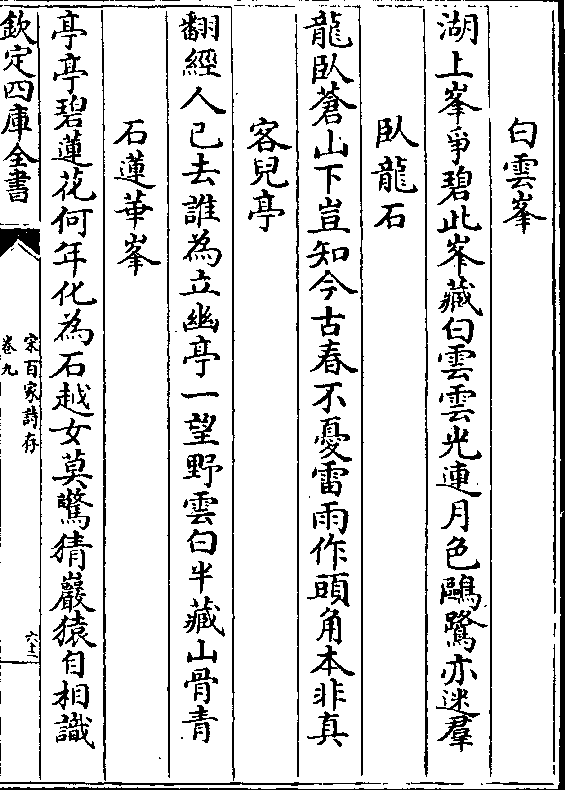 白雲峯
湖上峯爭碧此峯藏白雲雲光連月色鷗鷺亦迷羣
臥龍石
龍臥蒼山下豈知今古春不憂雷雨作頭角本非真
客兒亭
翻經人已去誰為立幽亭一望野雲白半藏山骨青
石蓮華峯
亭亭碧蓮花何年化為石越女莫驚猜巖猿自相識
欽定四庫全書
宋百家詩存
卷九
六十二